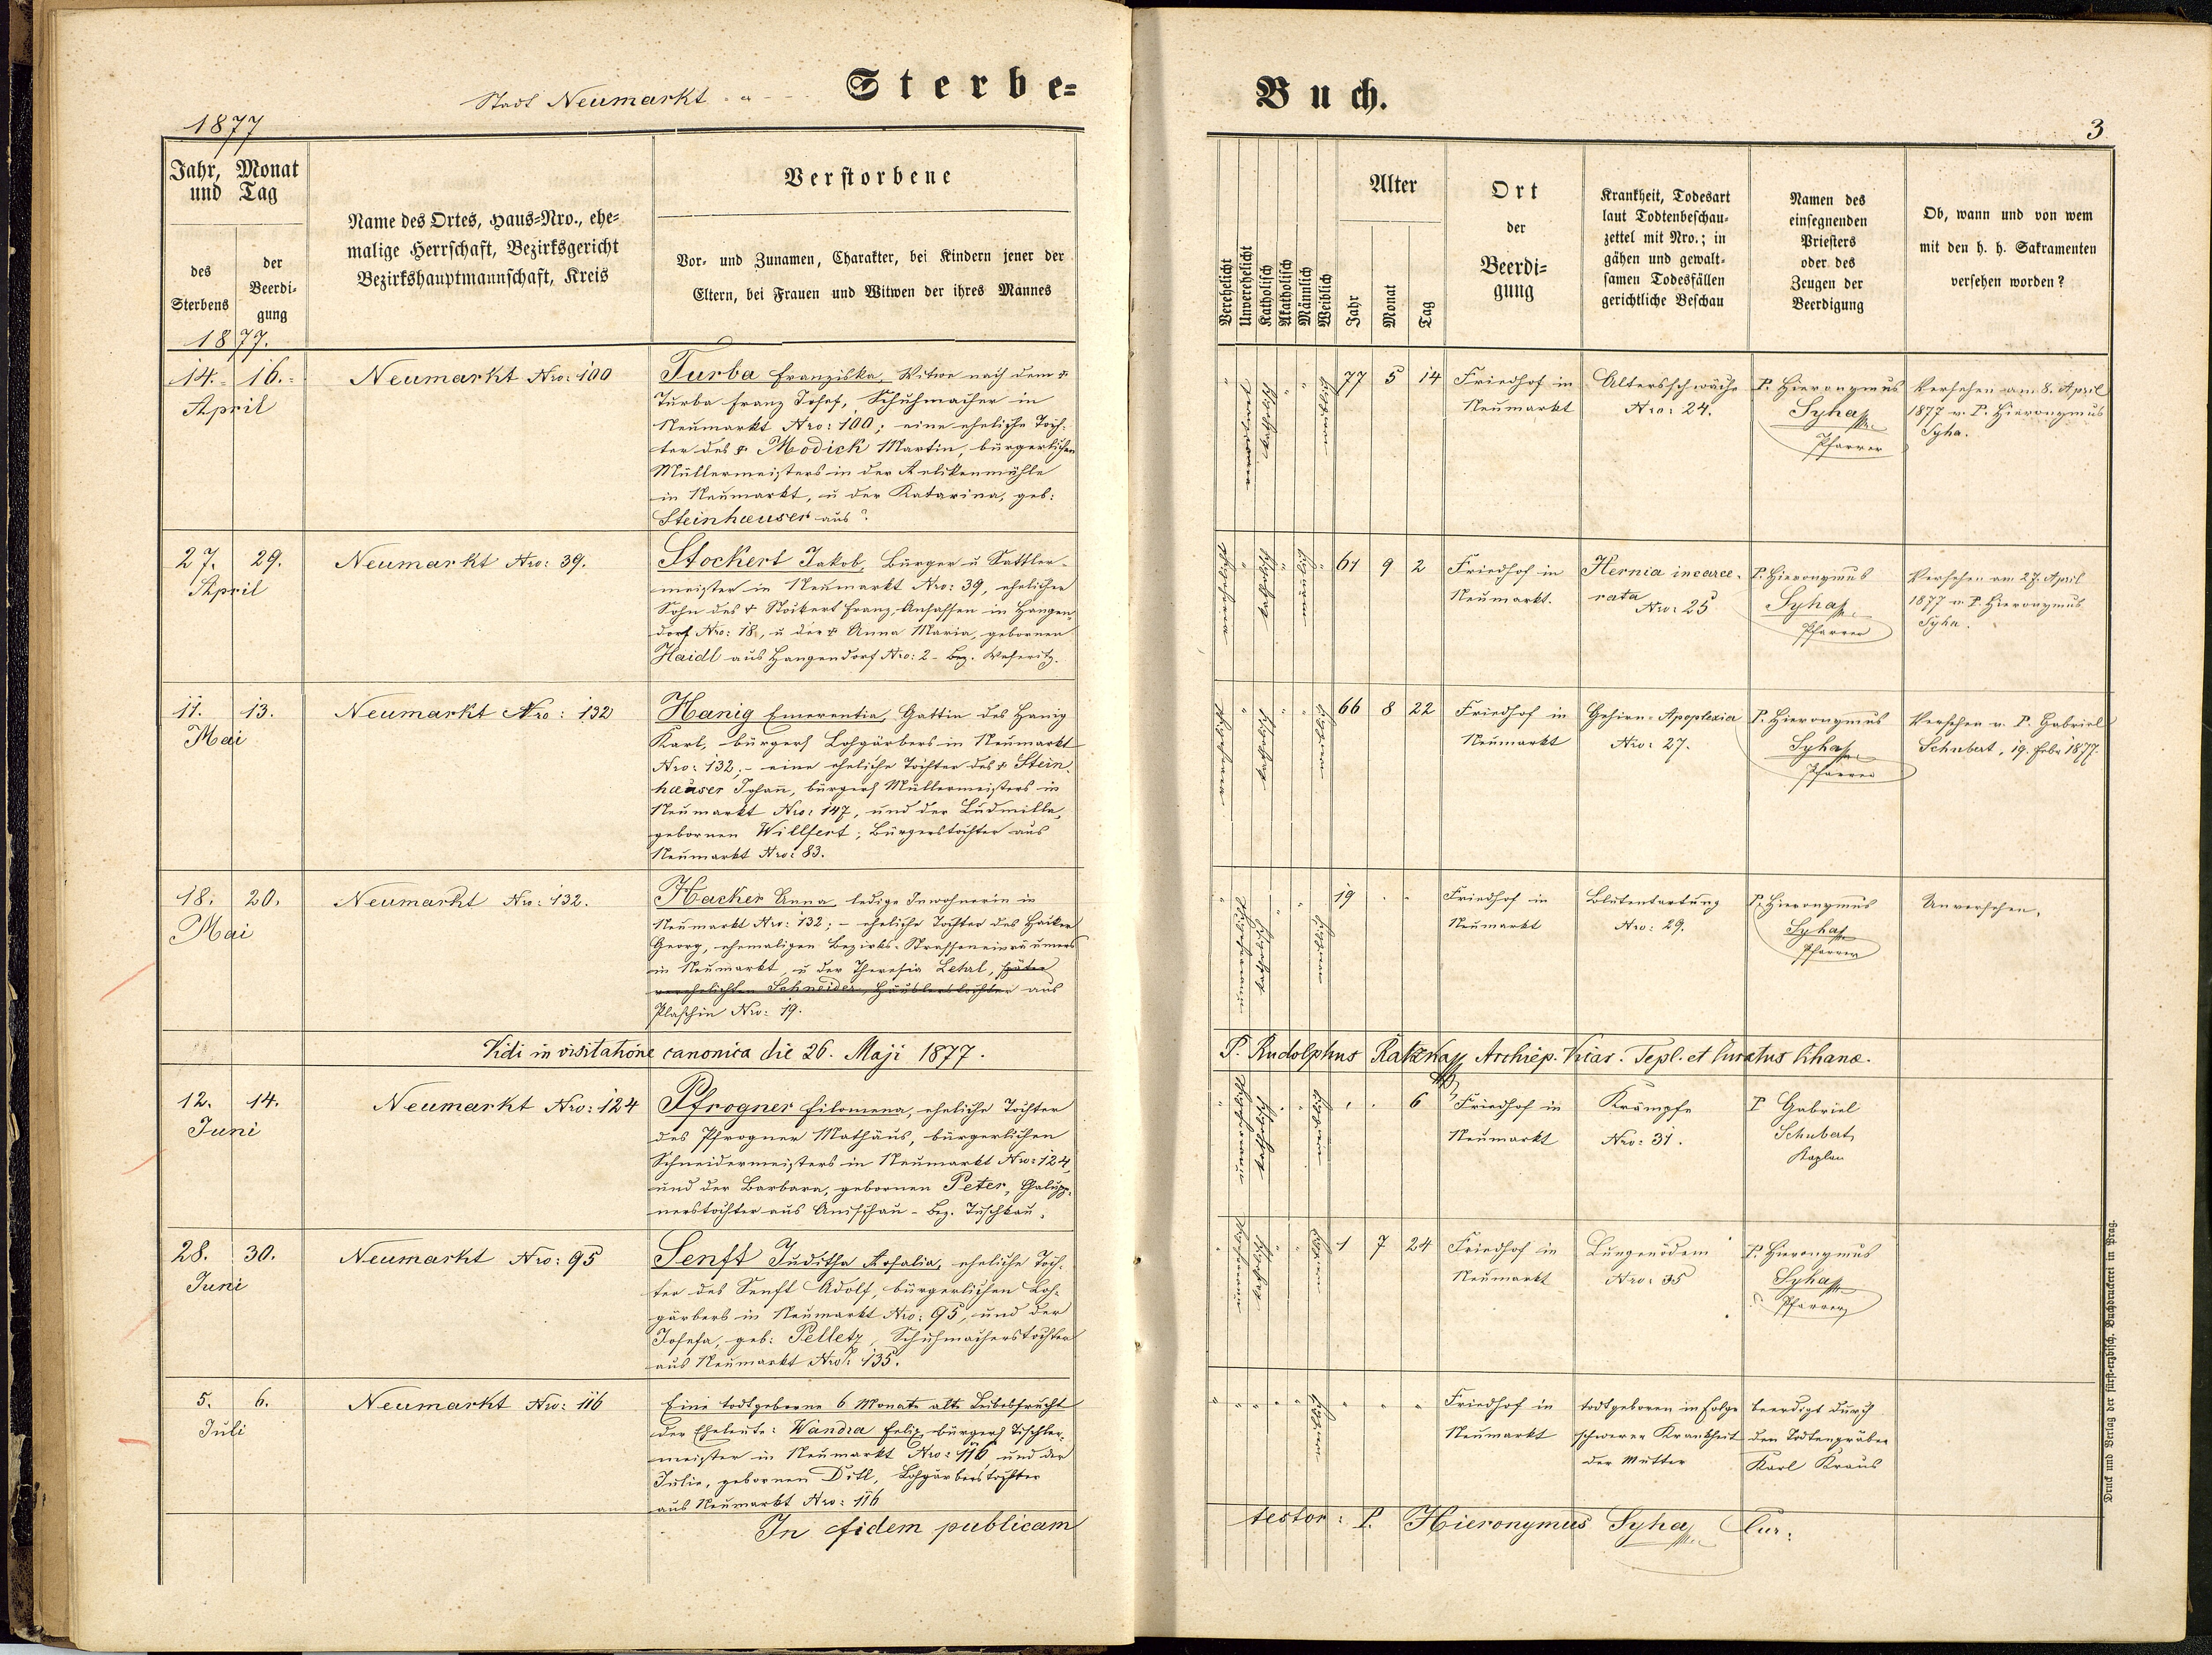 Stadt Neumarkt
Sterbe-
1877
Jahr, Monat
und Tag
des
Sterbens
der
Beerdi-
gung
1877.
Name des Ortes, Haus-Nro., ehe-
malige Herrschaft, Bezirksgericht
Bezirkshauptmannschaft, Kreis
Verstorbene
Vor- und Zunamen, Charakter, bei Kindern jener der
Eltern, bei Frauen und Witwen der ihres Mannes
14. 16.
April
Neumarkt Nro: 100
Turba Franziska, Witwe nach dem †
Turba Franz Josef, Schuhmacher in
Neumarkt Nro: 100; eine eheliche Toch-
ter des † Modick Martin, bürgerlichen
Müllermeisters in der Relikenmühle
in Neumarkt, u der Katarina, geb:
Steinhæuser aus ?.
27. 29.
April
Neumarkt Nro: 39.
Stockert Jakob, Bürger u Sattler-
meister in Neumarkt Nro: 39, ehelicher
Sohn des † Stockert Franz, Ansassen in Hangen-
dorf Nro: 18, u der † Anna Maria, gebornen
Haidl aus Hangendorf Nro: 2 - Bez. Weseritz.
11. 13.
Mai
Neumarkt Nro: 132
Hanig Emerentia, Gattin des Hanig
Karl, bürgerl Lohgärbers in Neumarkt
Nro: 132; - eine eheliche Tochter des † Stein-
häuser Johann, bürgerl Müllermeisters in
Neumarkt Nro: 147, und der Ludmilla,
gebornen Willfert, Bürgerstochter aus
Neumarkt Nro: 83.
18. 20.
Mai
Neumarkt Nro: 132.
Hacker Anna ledige Inwohnerin in
Neumarkt Nro: 132; - eheliche Tochter des Hacker
Georg, ehemaligen Bezirks-Strasseneinräumers
in Neumarkt, u der Theresia Letal, später
verehelichten Schneider, Häuslerstochter aus
Plaschin Nro: 19.
Vidi in visitatione canonica die 26. Maji 1877.
12. 14.
Juni
Neumarkt Nro: 124
Pfrogner Filomena, eheliche Tochter
des Pfrogner Mathäus, bürgerlichen
Schneidermeisters in Neumarkt Nro: 124,
und der Barbara, gebornen Peter, Chalupp-
nerstochter aus - Bez. Tuschkau.
28. 30.
Juni
Neumarkt Nro: 95
Senft Juditha Rosalia, eheliche Toch-
ter des Senft Adolf, bürgerlichen Loh-
gärbers in Neumarkt Nro: 95, und der
Josefa, geb: Pelletz, Schuhmacherstochter
aus Neumarkt Nro: 135.
5. 6.
Juli
Neumarkt Nro: 116
Eine todtgeborne 6 Monate alte Leibesfrucht
der Eheleute: Wandra Felix, bürgerl Tischler-
meister in Neumarkt Nro: 116 und der
Julie, gebornen Ditl, Lohgärberstochter
aus Neumarkt Nro: 116
In fidem publicam
Buch.
3
Verehelicht
Unverehelicht
Katholisch
Akatholisch
Männlich
Weiblich
Alter
Jahr
Monat
Tag
Ort
der
Beerdi-
gung
Krankheit, Todesart
laut Todtenbeschau-
zettel mit Nro.; in
gähen und gewalt-
samen Todesfällen
gerichtliche Beschau
Namen des
einsegnenden
Priesters
oder des
Zeugen der
Beerdigung
Ob, wann und von wem
mit den h. h. Sakramenten
versehen worden?
77 5 14
Friedhof in
Neumarkt
Altersschwäche
Nro: 24.
P. Hieronymus
Syha
Pfarrer
Versehen am 8. April
1877 v. P. Hieronymus
Syha.
61 9 2
Friedhof in
Neumarkt.
Hernia incarce-
rata
Nro: 25
P. Hieronymus
Syha
Pfarrer
Versehen am 27. April
1877 v. P. Hieronymus
Syha.
66 8 22
Friedhof in
Neumarkt
Gehirn-Apoplexia
Nro: 27.
P. Hieronymus
Syha
Pfarrer
Versehen v. P. Gabriel
Schubert, 19. Febr 1877.
19
Friedhof in
Neumarkt
Blutentartung
Nro: 29.
P. Hieronymus
Syha
Pfarrer
Unversehen.
P. Rudolphus Archiep. Vicar. Tepl. et Curatus
6
Friedhof in
Neumarkt
Krämpfe
Nro: 31.
P Gabriel
Schubert
Kaplan
1 7 24
Friedhof in
Neumarkt
Lungenödem
Nro: 35
P. Hieronymus
Syha
Pfarrer
Friedhof in
Neumarkt
todtgeboren in Folge
schwerer Krankheit
der Mutter
beerdigt durch
den Todtengräber
Karl Kraus
testor: P. Hieronymus Syha Cur:
Druck und Verlag der fürst-erzbisch. Buchdruckerei in Prag.